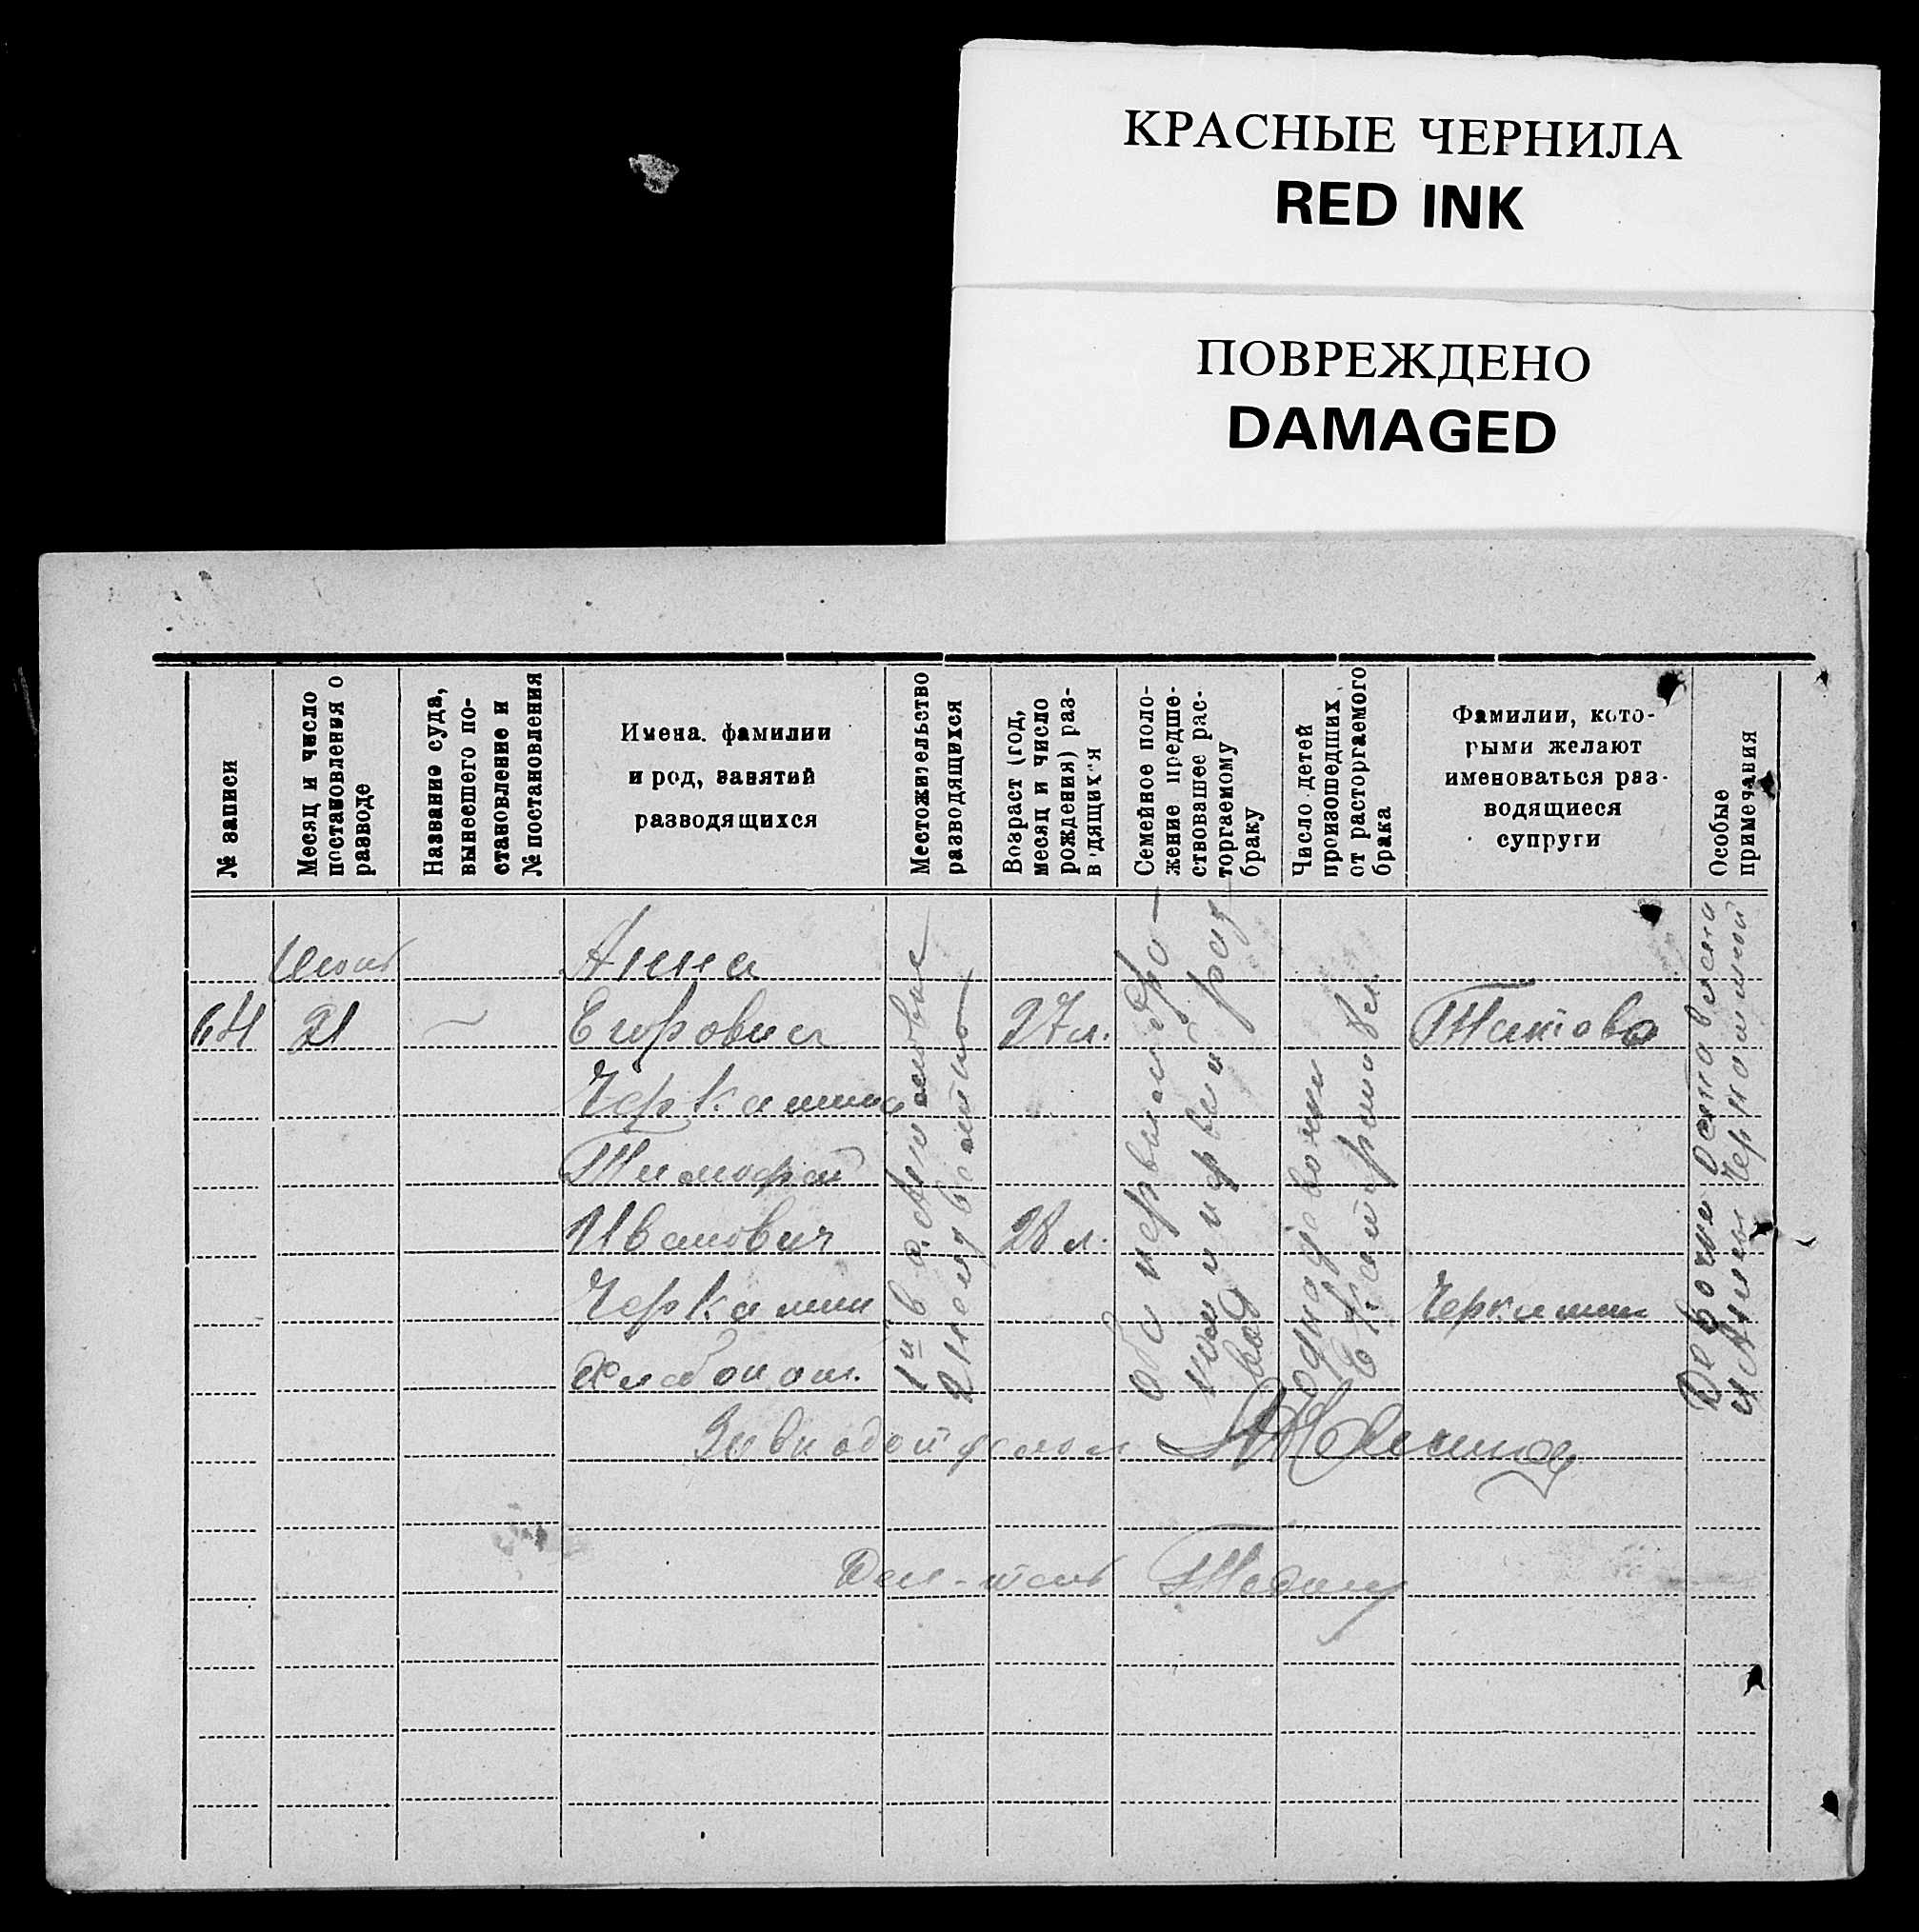 КРАСНЫЕ ЧЕРНИЛА
RED INK
ПОВРЕЖДЕНО
DAMAGED
№ записи
Месяц и число
постановления о
разводе
Название суда,
вынесшего по-
становление и
№ постановления
Имена, фамилии
и род, занятий
разводящихся
Местожительство
разводящихся
Возраст (год,
месяц и число
рождения) раз-
в дящихся
Семейное поло-
жение предше-
ствовавшее рас-
торгаемому
браку
Число детей
происшедших
от расторгаемого
брака
Фамилии, кото-
рыми желают
именоваться раз-
водящиеся
супруги
Особые
примечания
64
21
Анна
Егоровна
Черкашина
Тимофей
Иванович
Черкашин
Хлебопаш.
1й в с.
2й
27 л.
28 л.
оба первым бра-
ком и первый раз-
вод
одна девочка
Екатерина
Титова
Черкашин
Девочка оставлена
Черкашиной
Зав подотделом
Дел-тель